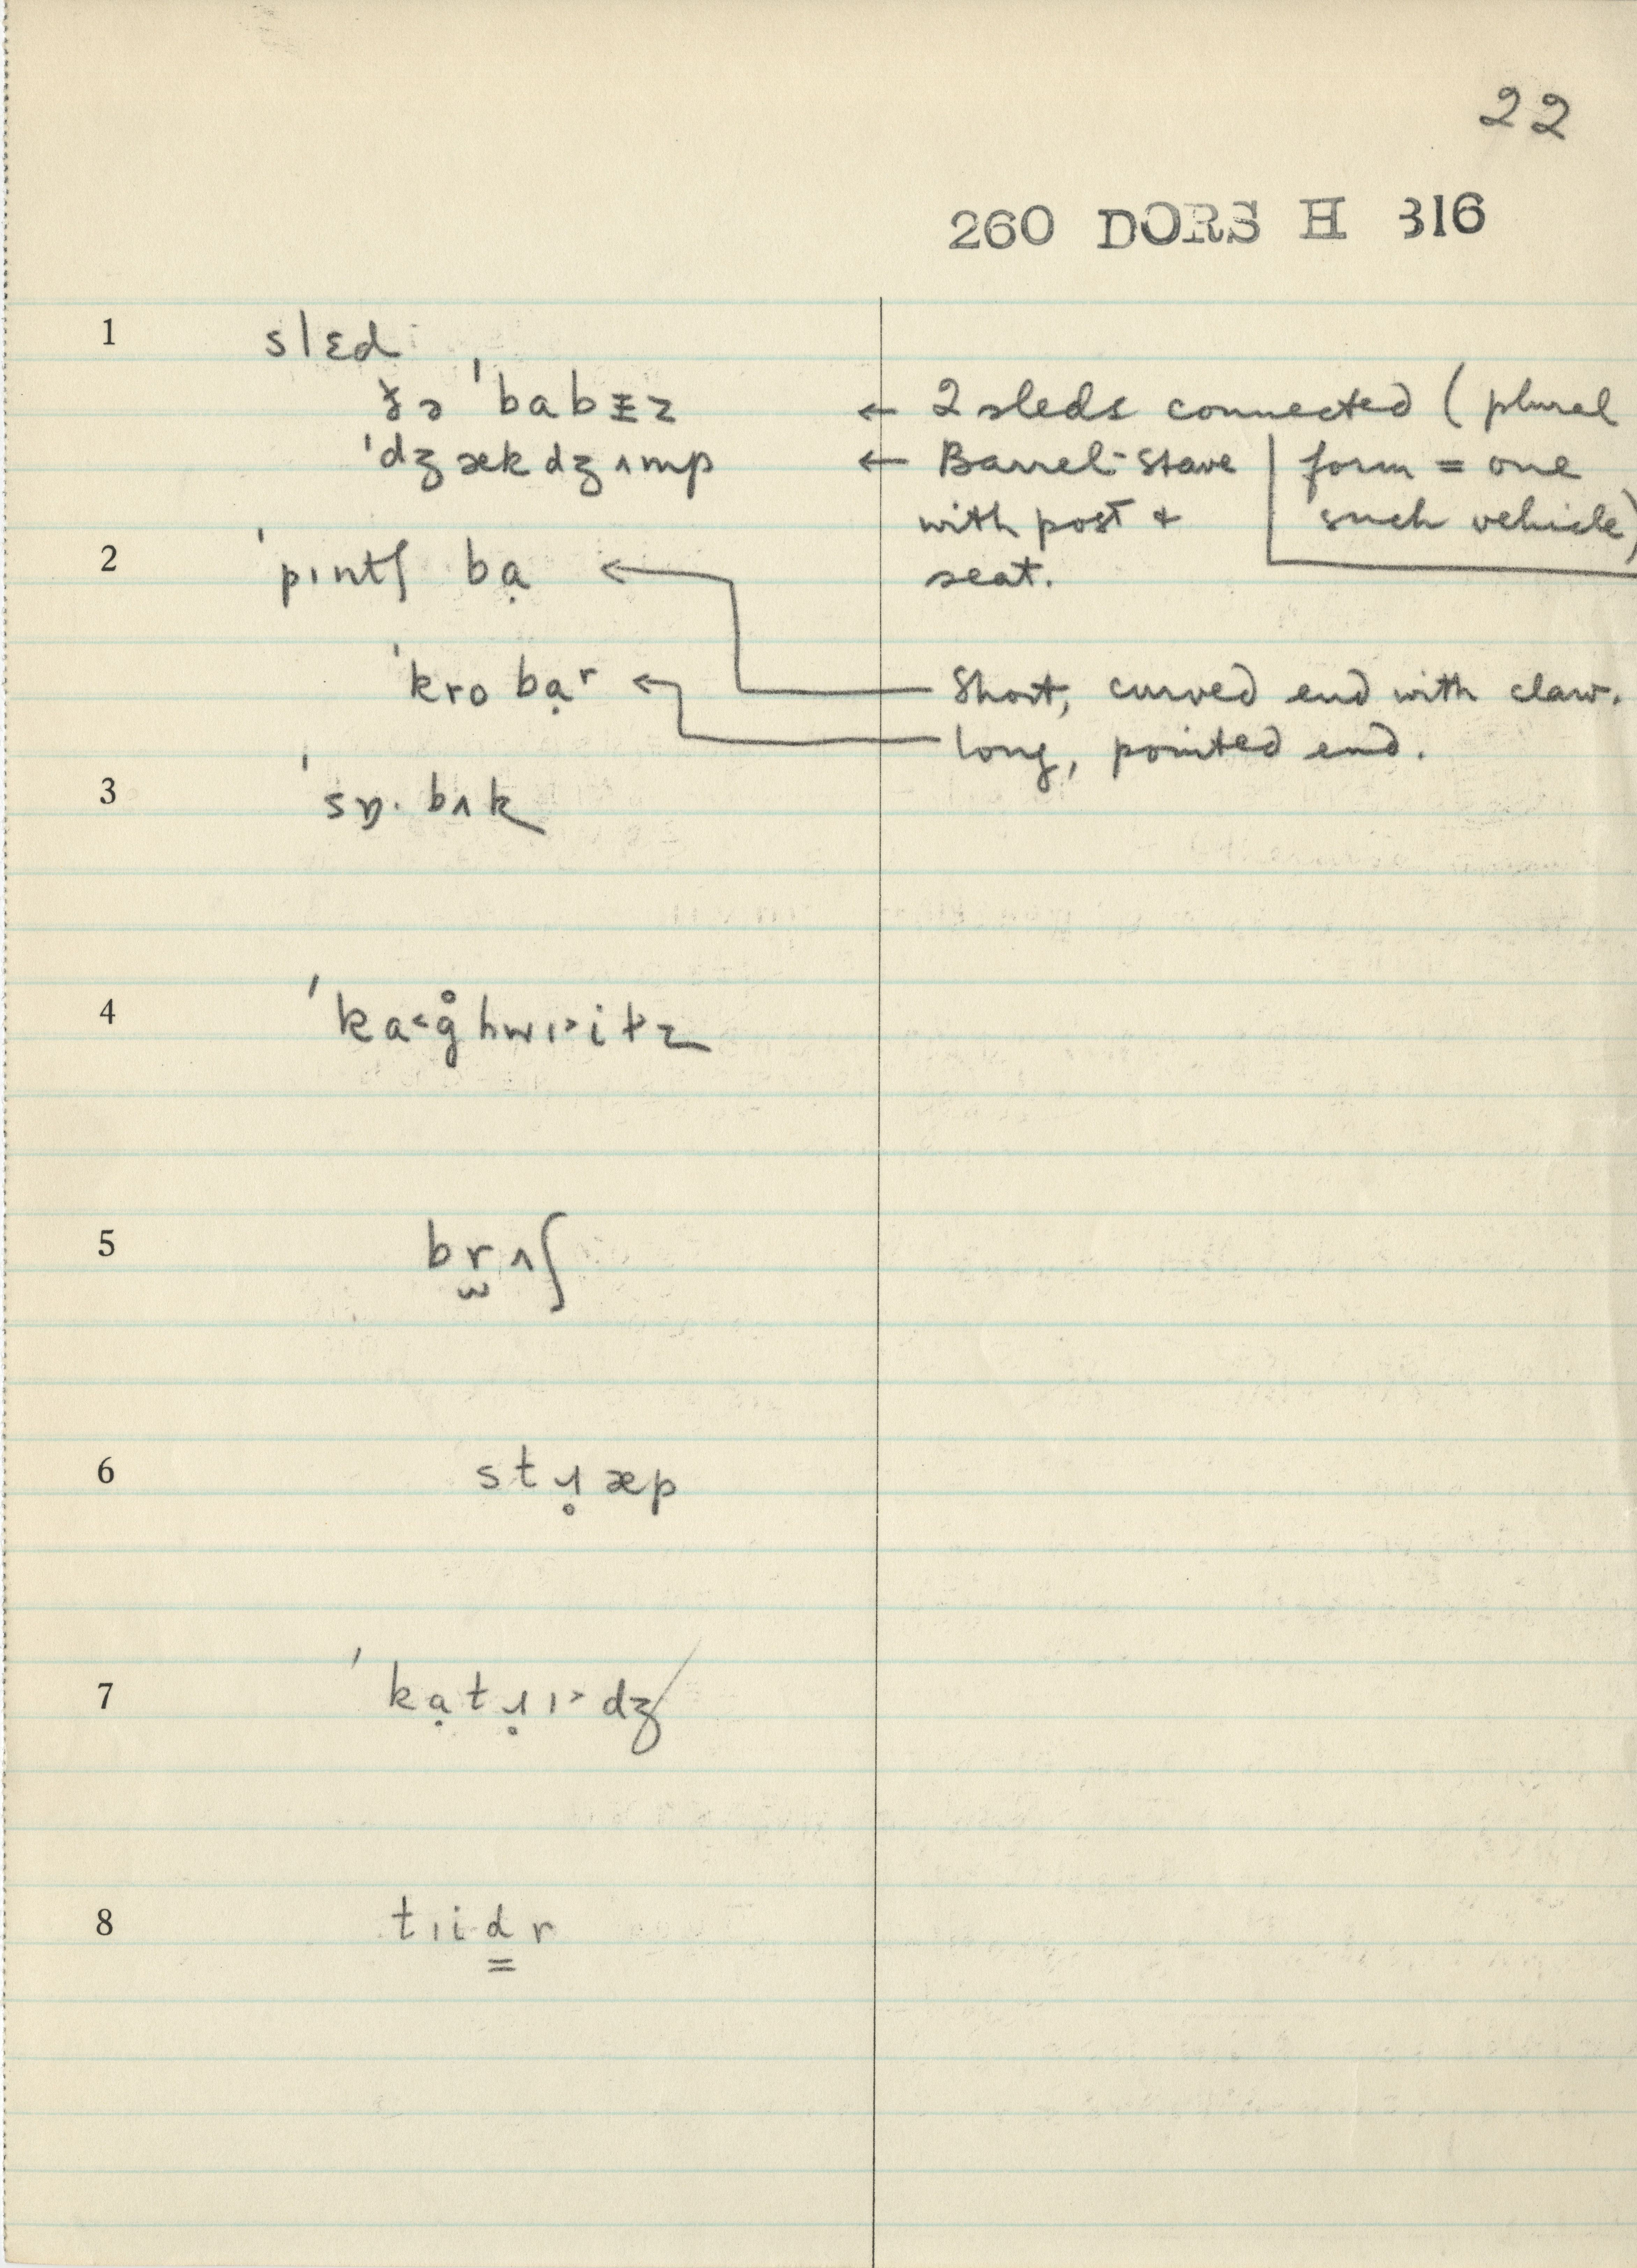 22
260 DORS H 316
1 slɛd
ðə ˈbabɪz ← 2 sleds connected (plural
ˈdʒækdʒʌmp ← Barrel-stave form = one
with post + such vehicle)
2 ˈpɪntʃ bạ seat.
ˈkro bạʳ Short, curved end with claw.
long, pointed end.
3 ˈsɒ· bʌk
4 ˈka<g̊hwɪ>itz
5 br̫ʌʃ
6 stɹ̥æp
7 ˈkạtɹ̥ɪ>dʒ
8 tɪid͇r